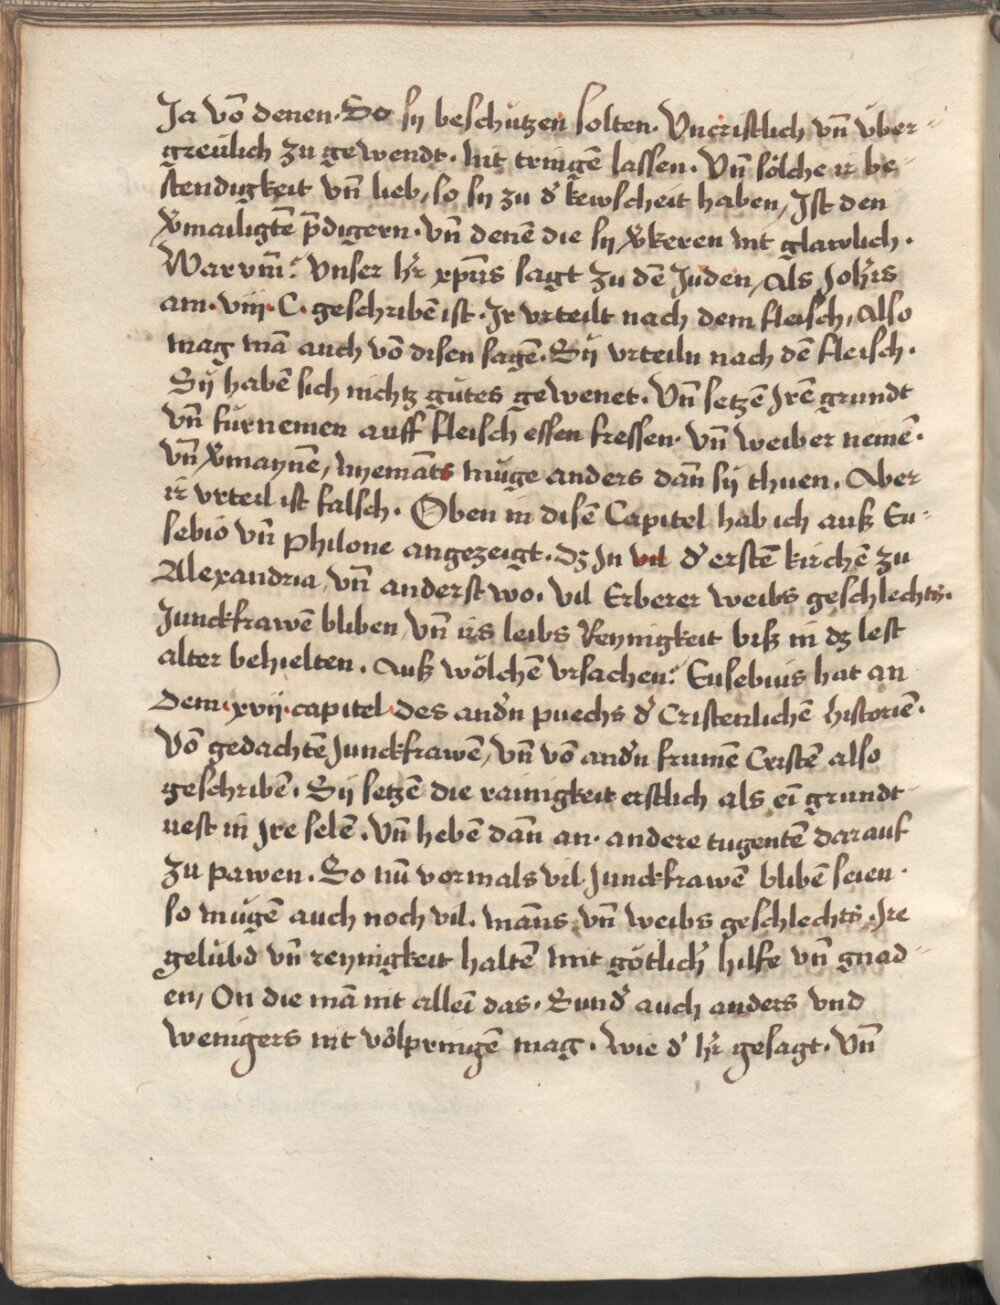 Ja vō denen. So sij beschützen solten. Vncristlich vn̄ vber-
greülich zu gewendt. nit tringē lassen. Vn̄ sölche ir be-
stendigkeit vn̄ lieb, so sij zu d' kewscheit haben, Ist den
v'mailigtē p̄digern. vn̄ denē die sij v'keren nit glawlich.
Warvm̄? Vnser hr̄ xp̄us sagt zu dē Juden, als Joh̄is
am. viij. C. geschribē ist. Ir vrteilt nach dem fleisch, Also
mag mā auch vō disen sagē. Sij vrteiln nach dē fleisch.
Sij habē sich nichtz gůtes gewenet. Vn̄ setzē Irē grundt
vn̄ fürnemen auff fleisch essen fressen. vn̄ weiber nemē.
vn̄ v'maynē, nyemāts müge anders dan̄ sij thuen. Aber
ir vrteil ist falsch. Oben in disē Capitel hab ich auß Eu-
sebio vn̄ Philone angezeigt. dz In vil d' erstē kirchē zu
Alexandria, vn̄ anderst wo. vil Erberer weibs geschlechts.
Junckfrawē bliben, vn̄ irs leibs Reynigkeit biß in dz lest
alter behielten. Auß wölchē vrsachen? Eusebius hat an
dem. xvij. capitel des and'n puechs d' Cristenlichē historiē.
Vō gedachtē Junckfrawē, vn̄ vō and'n frumē Cristē also
geschribē. Sij setzē die rainigkeit erstlich als eī grundt
uest in Ire selē. Vn̄ hebē dan̄ an. andere tugentē darauf
zu pawen. So nū vormals vil Junckfrawē blibē seien.
so mügē auch noch vil. man̄s vn̄ weibs geschlechts. Ire
gelübd vn̄ reynigkeit haltē mit götlich' hilfe vn̄ gnad-
en, On die mā nit alleī das. Sund' auch anders vnd
wenigers nit völpringē mag. Wie d' hr̄ gesagt. Vn̄